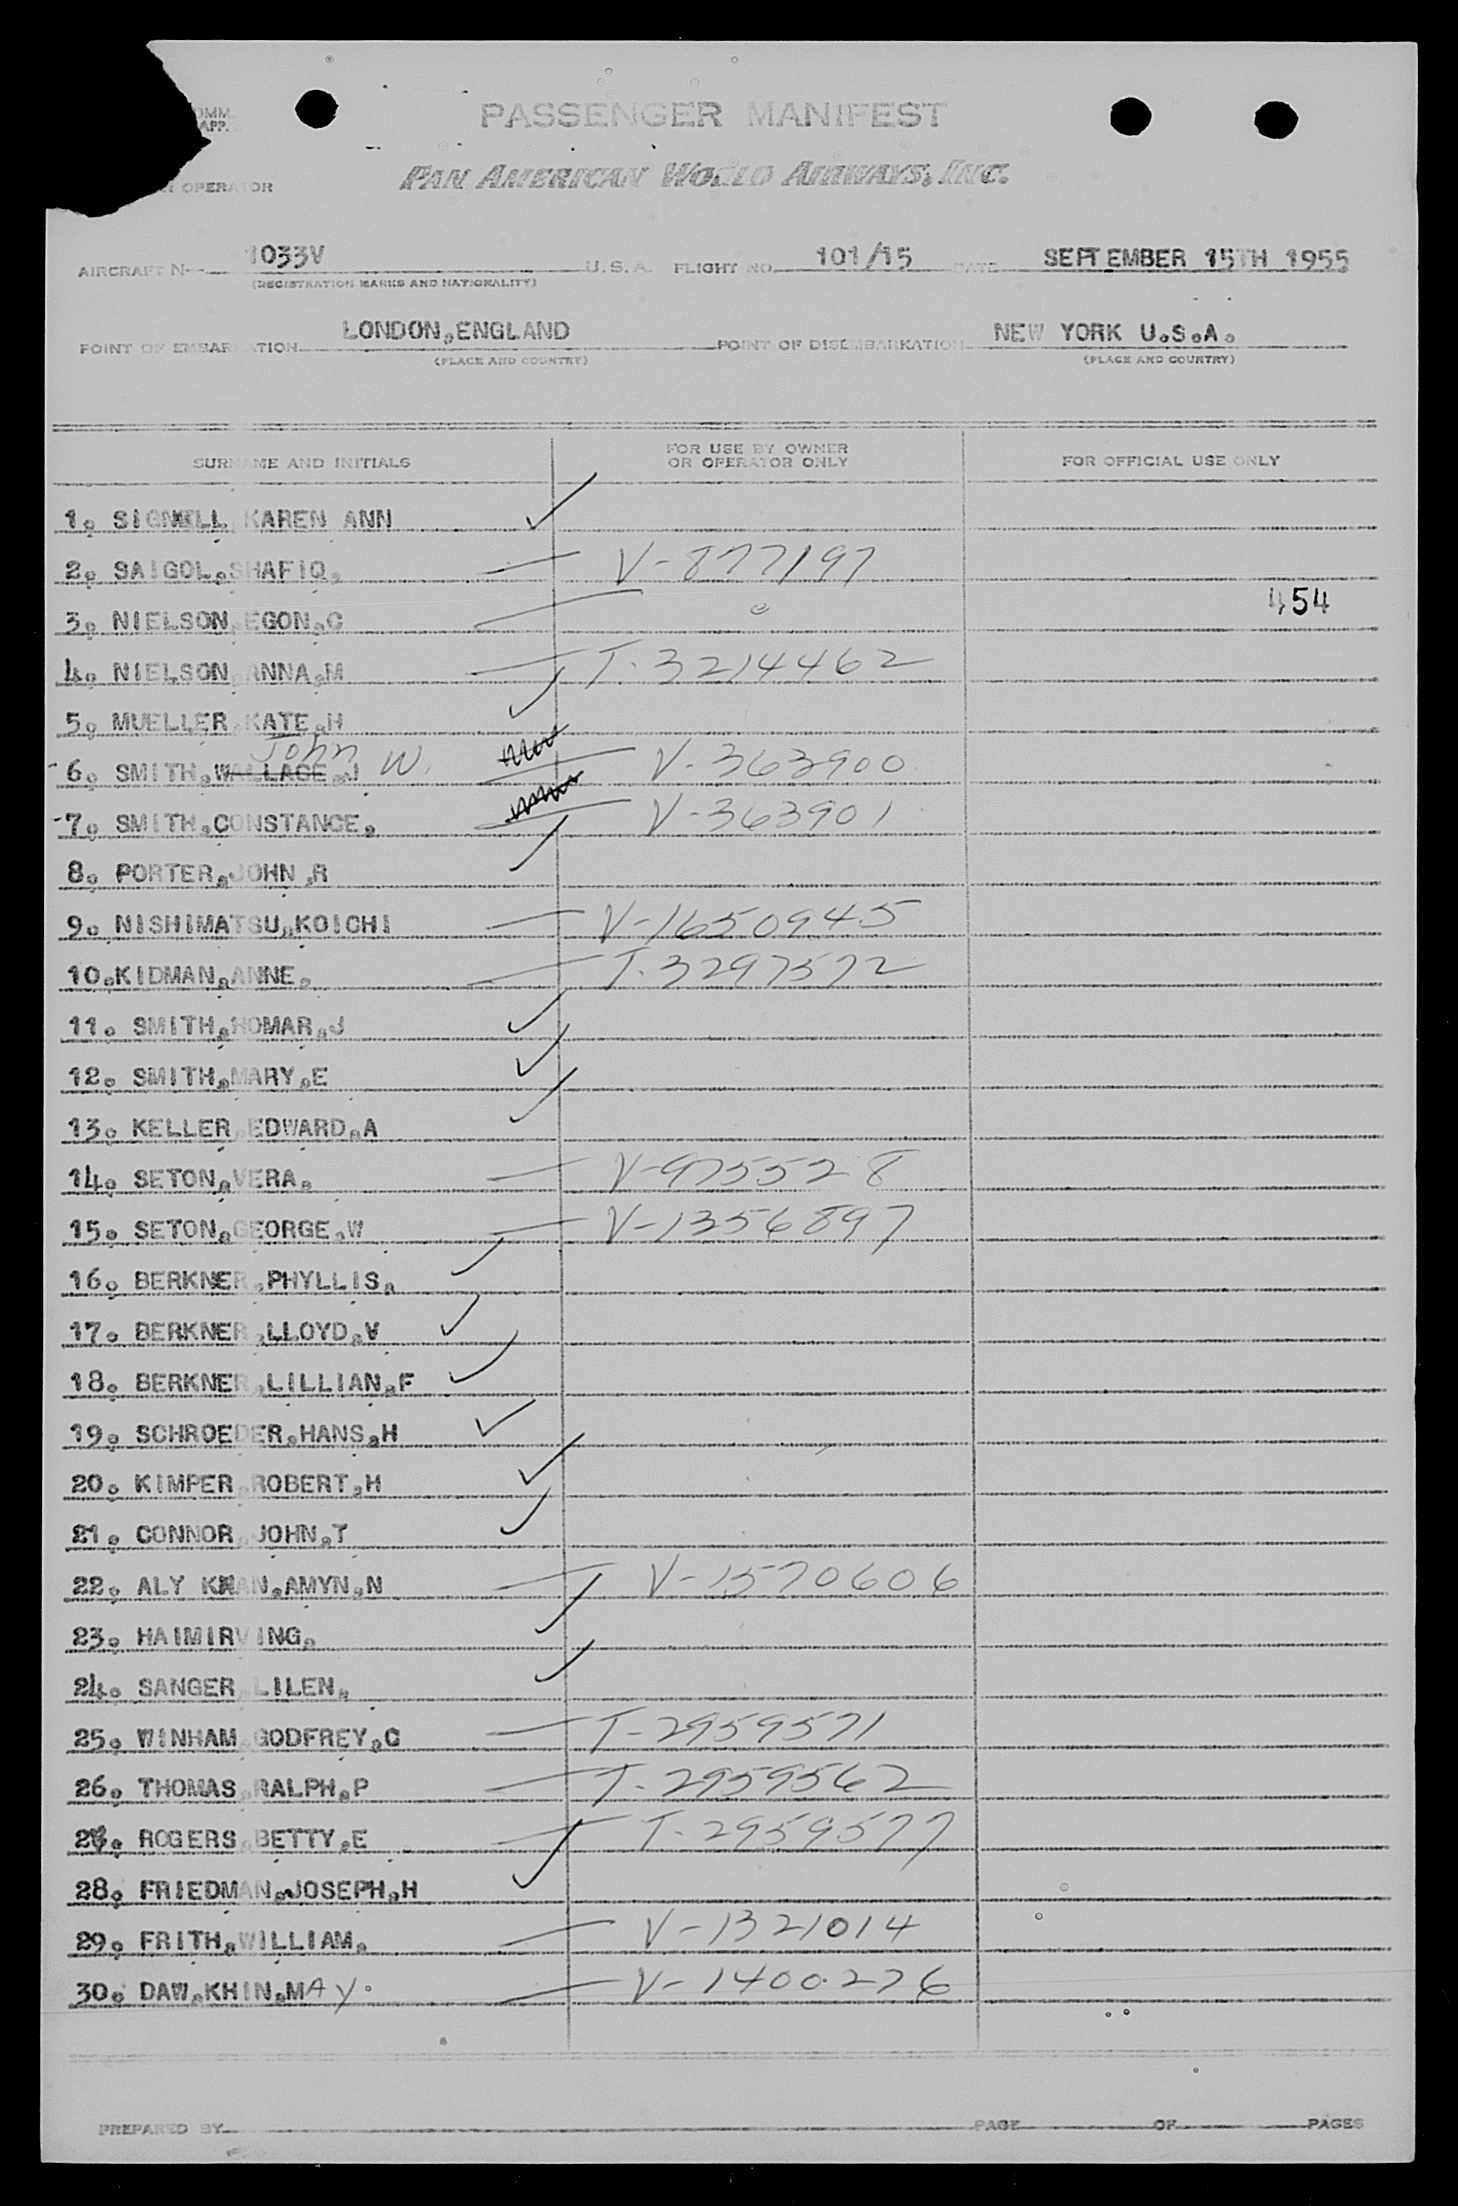 OMM.
APP.
PASSENGER MANIFEST
OPERATOR
PAN AMERICAN WORLD AIRWAYS, INC.
AIRCRAFT N- 1033V U.S.A. FLIGHT NO. 101/15 DATE SEPTEMBER 15TH 1955
(REGISTRATION MARKS AND NATIONALITY)
POINT OF EMBARKATION LONDON,ENGLAND POINT OF DISEMBARKATION NEW YORK U.S.A.
(PLACE AND COUNTRY) (PLACE AND COUNTRY)
SURNAME AND INITIALS FOR USE BY OWNER OR OPERATOR ONLY FOR OFFICIAL USE ONLY
1. KAREN ANN ✓
2. SAIGOL,SHAFIQ, V-877197
3. NIELSON,EGON,C 454
4. NIELSON,ANNA,M T.3214462
5. MUELLER,KATE,H ✓
6. SMITH,WALLACE,J John W. V-363900
7. SMITH,CONSTANCE, V-363901
8. PORTER,JOHN,R ✓
9. NISHIMATSU,KOICHI V-1650945
10.KIDMAN,ANNE, T.3297572
11. SMITH,HOMAR,J ✓
12. SMITH,MARY,E ✓
13. KELLER,EDWARD,A ✓
14. SETON,VERA, V-975528
15. SETON,GEORGE,W V-1356897
16. BERKNER,PHYLLIS, ✓
17. BERKNER,LLOYD,V ✓
18. BERKNER,LILLIAN,F ✓
19. SCHROEDER,HANS,H ✓
20. KIMPER,ROBERT,H ✓
21. CONNOR,JOHN,T ✓
22. ALY KHAN,AMYN,N V-1570606
23. HAIMIRVING, ✓
24. SANGER,LILEN, ✓
25. WINHAM,GODFREY,C T-2959571
26. THOMAS,RALPH,P T-2959562
27. ROGERS,BETTY,E T-2959577
28. FRIEDMAN,JOSEPH,H ✓
29. FRITH,WILLIAM, V-1321014
30. DAW,KHIN,MAY. V-1400276
PREPARED BY PAGE OF PAGES